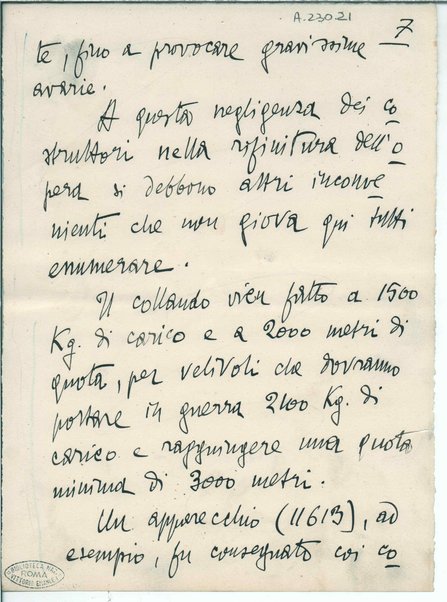 A.230.21
7
te, fino a provocare gravissime
avarie.
A questa negligenza dei co
struttori nella rifinitura dell'o
pera si debbono altri inconve
nienti che non giova qui tutti
enumerare.
Il collaudo vien fatto a 1500
Kg. di carico e a 2000 metri di
quota, per velivoli che dovranno
portare in guerra 2100 Kg. di
carico e raggiungere una quota
minima di 3000 metri.
Un apparecchio (11613), ad
esempio, fu consegnato coi co
BIBLIOTECA NAZ.
ROMA
VITTORIO EMANUELE